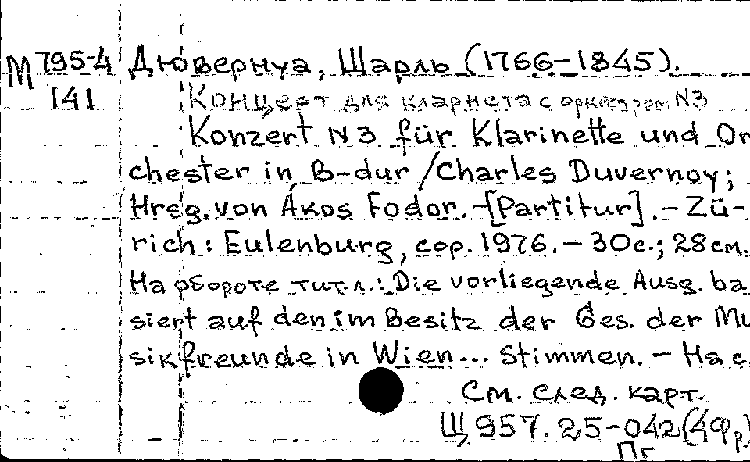 М 795-4
141
Дювернуа, Шарль (1766-1845).
Концерт для кларнета с оркестром N3
Konzert N3 für Klarinette und Or
chester in B-dur / Charles Duvernoy;
Hrsg. von Ákos Fodor. - [Partitur]. - Zü-
rich: Eulenburg, cop. 1976. - 30 с.; 28 см.
На обороте тит. л.: Die vorliegende Ausg. ba
siert auf den im Besitz der Ges. der Mu
sikfreunde in Wien... Stimmen. - На
См. след. карт.
Щ 957.25-042(4Фр)